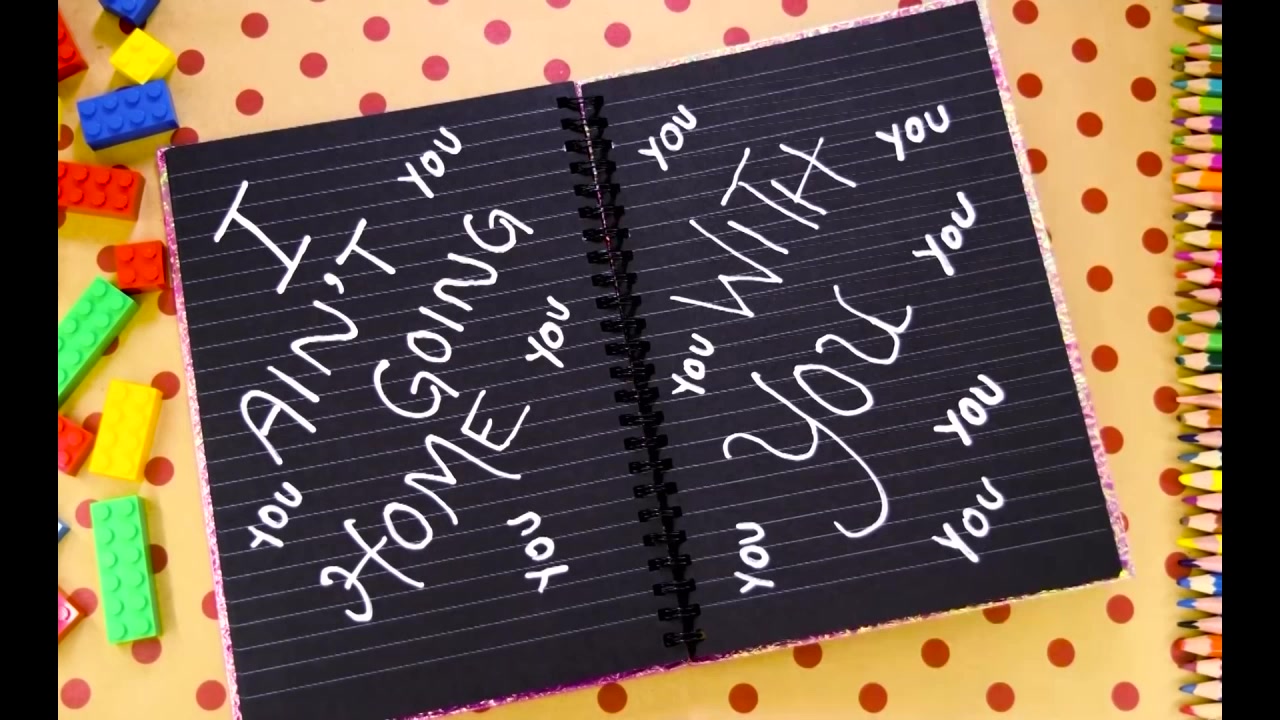 I
AIN'T
GOING
HOME
YOU
YOU
YOU
YOU
WITH
YOU
YOU
YOU
YOU
YOU
YOU
YOU
YOU